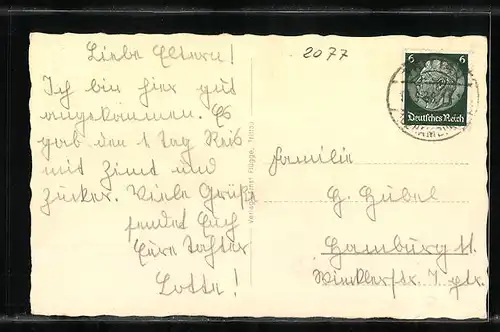 Liebe Eltern!
Ich bin hier gut
angekommen. Es
gab den 1 Tag Reis
mit Zimt und
Zucker. Viele Grüße
sendet Euch
Eure Tochter
Lotte!
2077
6 6
Deutsches Reich
Verlag: Flügge, Trittau
Familie
G. Gübel
Hamburg 11.
Wincklerstr. 7 ptr.